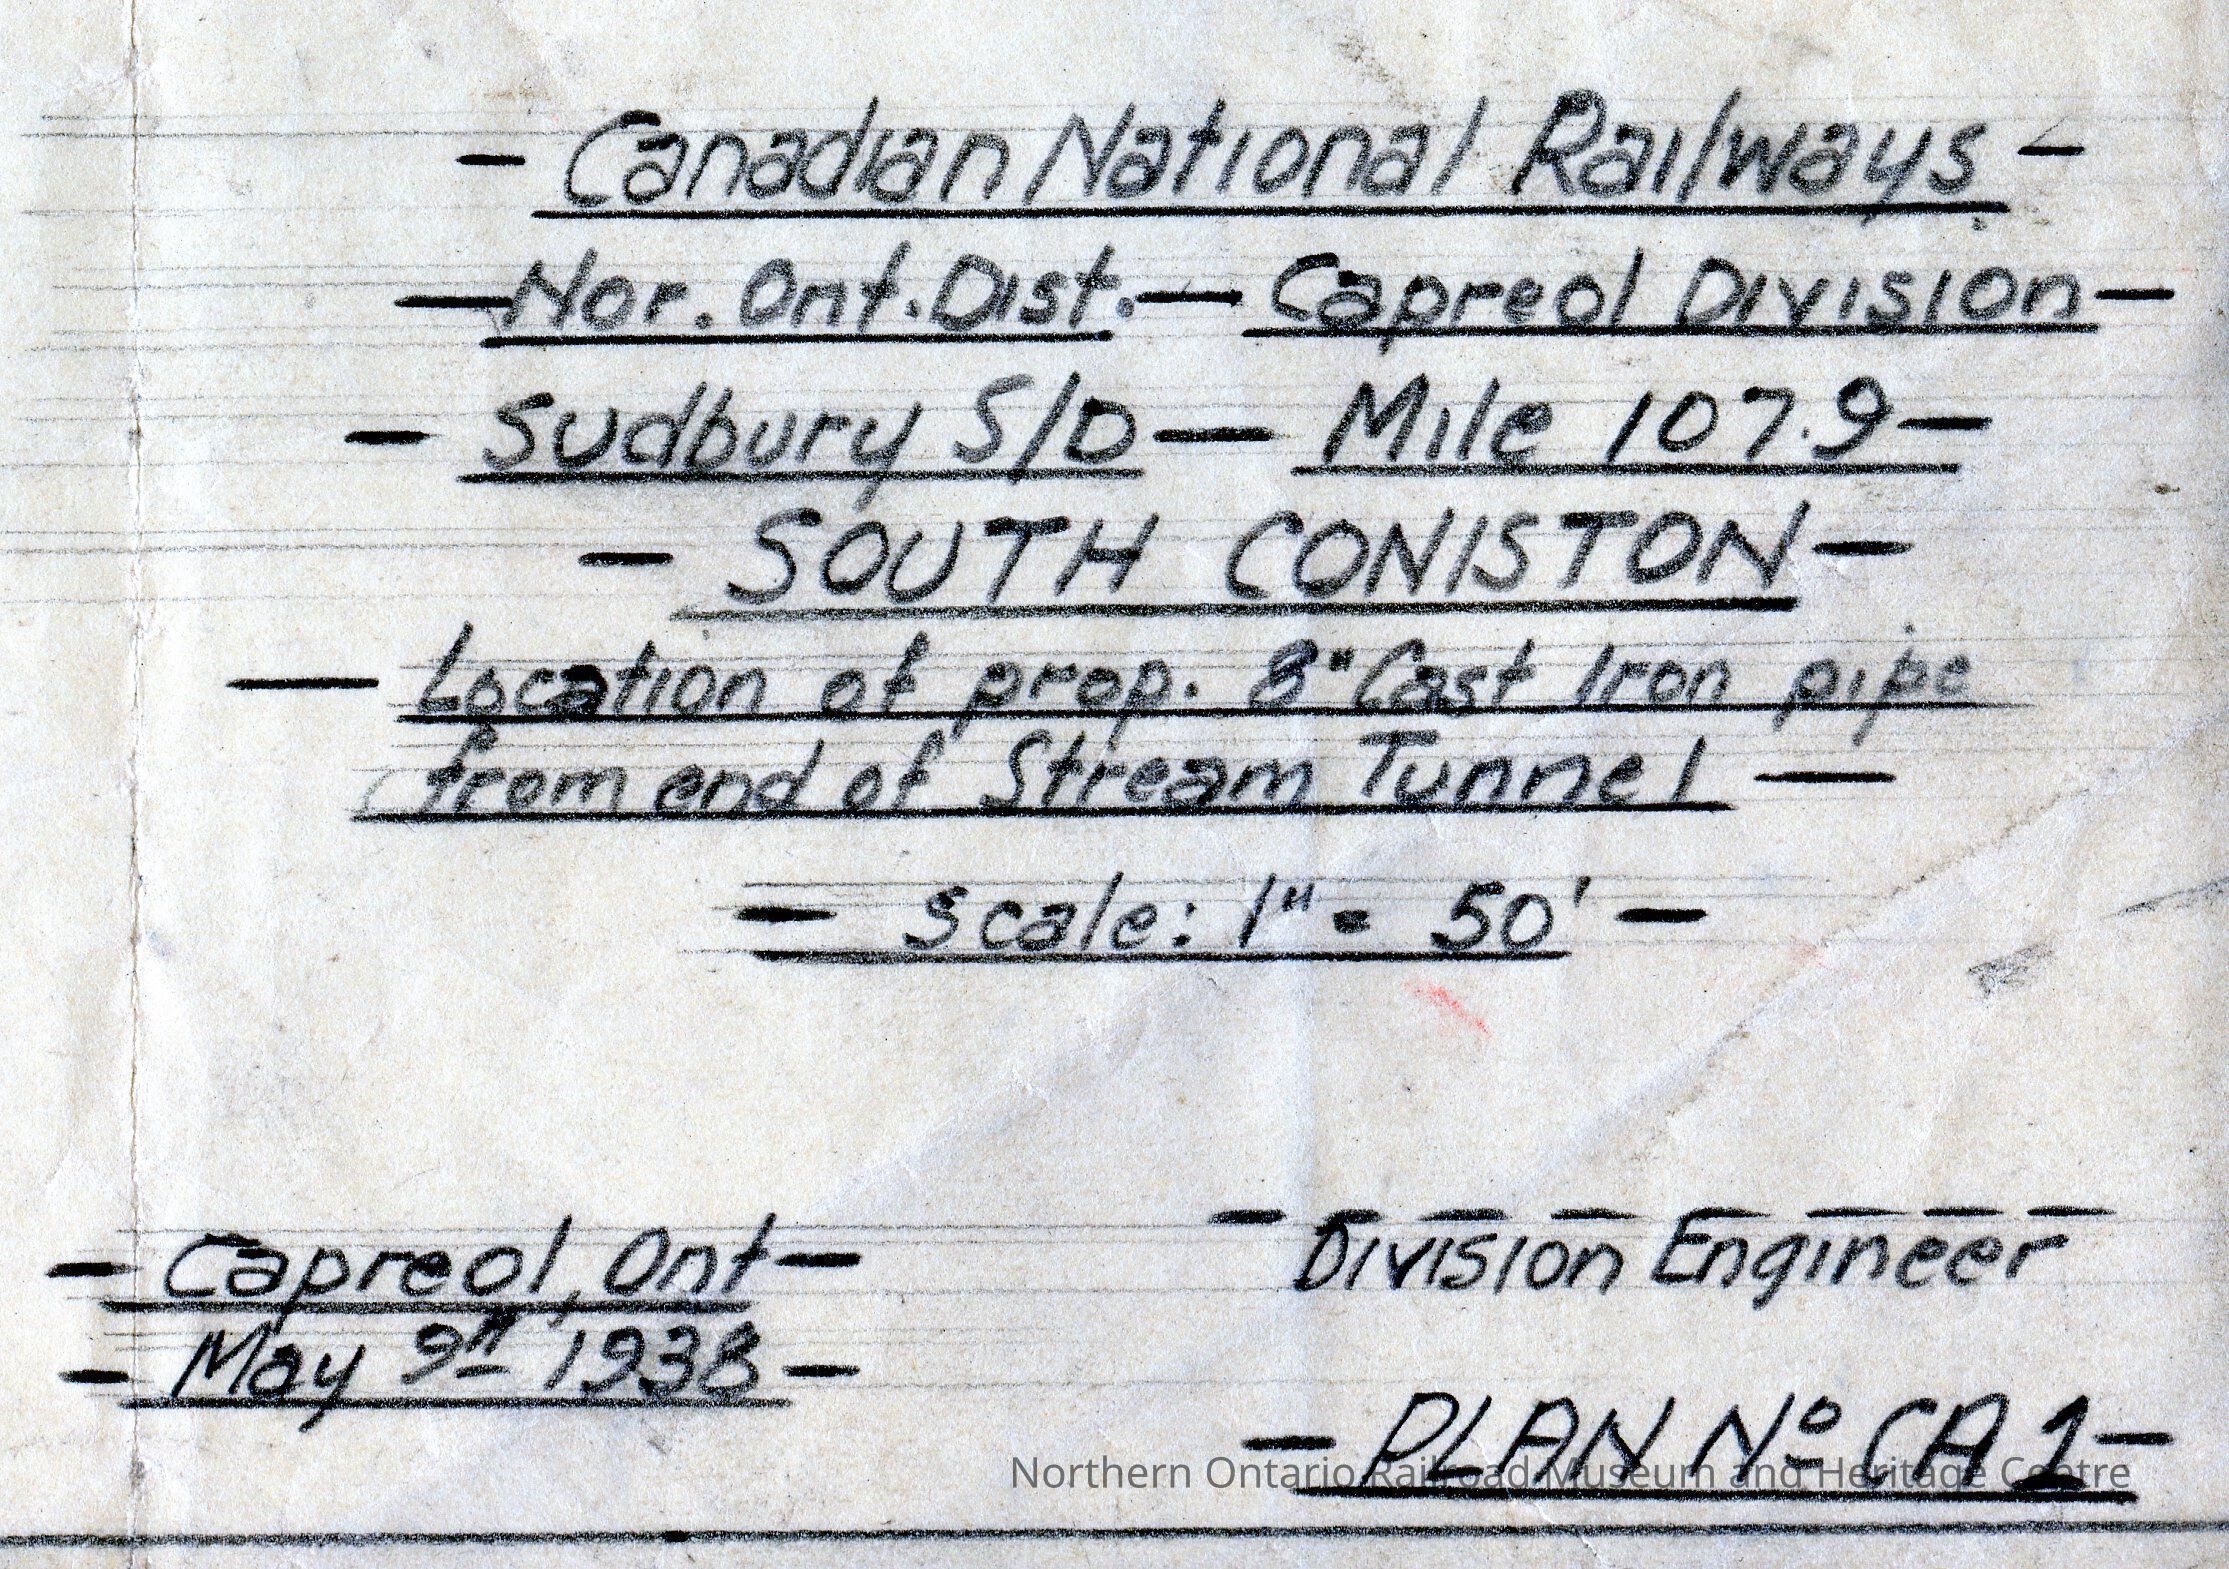 - Canadian National Railways -
- Nor. Ont. Dist. - Capreol Division -
- Sudbury S/D - Mile 107.9 -
- SOUTH CONISTON -
- Location of prop. 8" Cast Iron pipe
from end of Stream Tunnel -
- Scale: 1" = 50' -
- Capreol, Ont -
- May 9th, 1938 -
Division Engineer
- PLAN No CA 1 -
Northern Ontario Railroad Museum and Heritage Centre